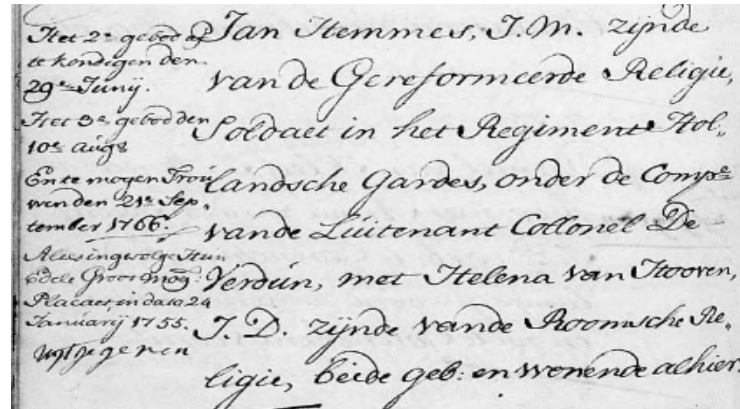 Het 2e gebod af
te kondigen den
29e Junij.
Het 3e gebod den
10e augs
En te mogen Trou
wen den 21e Sep,
tember 1766.
Alles ingevolge Hun
Edele Groot Mog:
Placaet, in data 24
Januarij 1755.
Jan Hemmes, J. M. zijnde
van de Gereformeerde Religie,
Soldaet in het Regiment Hol,
landsche Gardes, onder de Compe
vande Luitenant Collonel De
Verdun, met Helena van Hooven,
J. D. zijnde vande Roomsche Re,
ligie, beide geb: en wonende alhier.